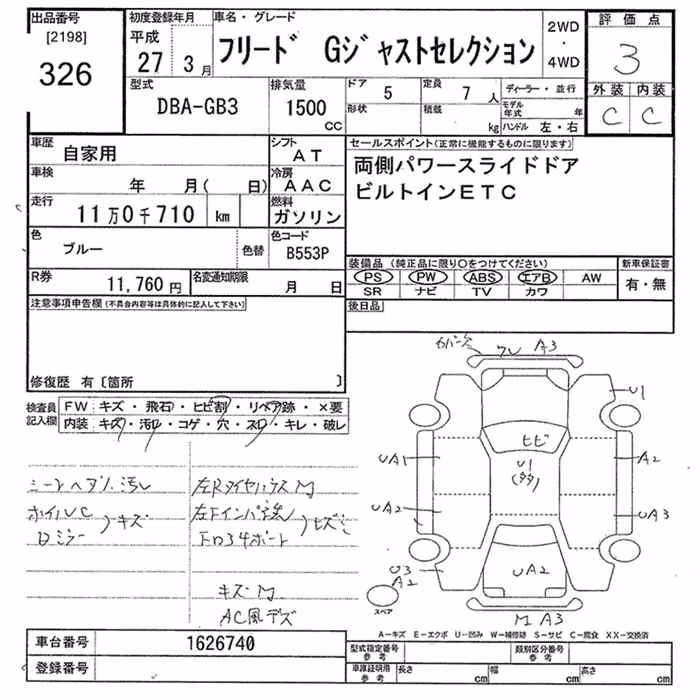 出品番号
[2198]
326
初度登録年月
平成
27 3月
車名・グレード
フリード Gジャストセレクション
2WD
・
4WD
評価点
3
外装 内装
C C
型式
DBA-GB3
排気量
1500
CC
ドア 5
定員 7人
ディーラー・並行
形状
積載 kg
モデル年式 年
ハンドル 左・右
車歴
自家用
シフト
AT
車検
年 月( 日)
冷房
AAC
走行
11万0千710 km
燃料
ガソリン
色
ブルー
色替
色コード
B553P
R券
11,760円
名変通知期限
月 日
セールスポイント(正常に機能するものに限ります)
両側パワースライドドア
ビルトインETC
装備品(純正品に限り○をつけてください)
新車保証書
PS PW ABS エアB AW
有・無
SR ナビ TV カワ
後日品
注意事項申告欄(不具合内容等は具体的に記入して下さい)
修復歴 有〔箇所 〕
検査員
記入欄
FW キズ・飛石・ヒビ割・リペア跡・×要
内装 キズ・汚れ・コゲ・穴・スレ・キレ・破レ
シートヘダレ汚レ
ホイルC
キズ
ミラー
キズM
AC風デズ
ワレ A3
U1
ヒビ
UA1
U1
A2
UA2
UA3
U3
A2
UA2
スペア
M A3
A-キズ E-エクボ U-凹み W-補修跡 S-サビ C-腐食 XX-交換済
車台番号
1626740
登録番号
型式指定番号
参考
類別区分番号
参考
車庫証明用
参考
長さ cm
幅 cm
高さ cm